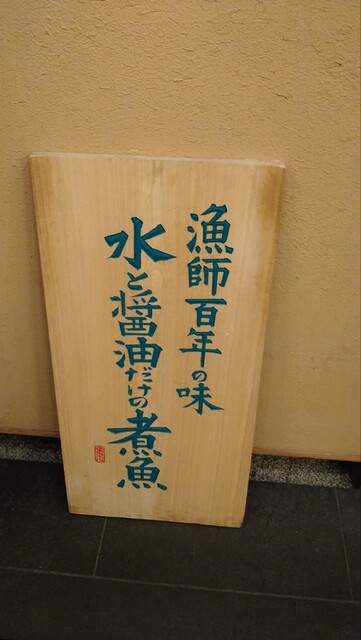 漁師百年の味
水と醤油だけの煮魚